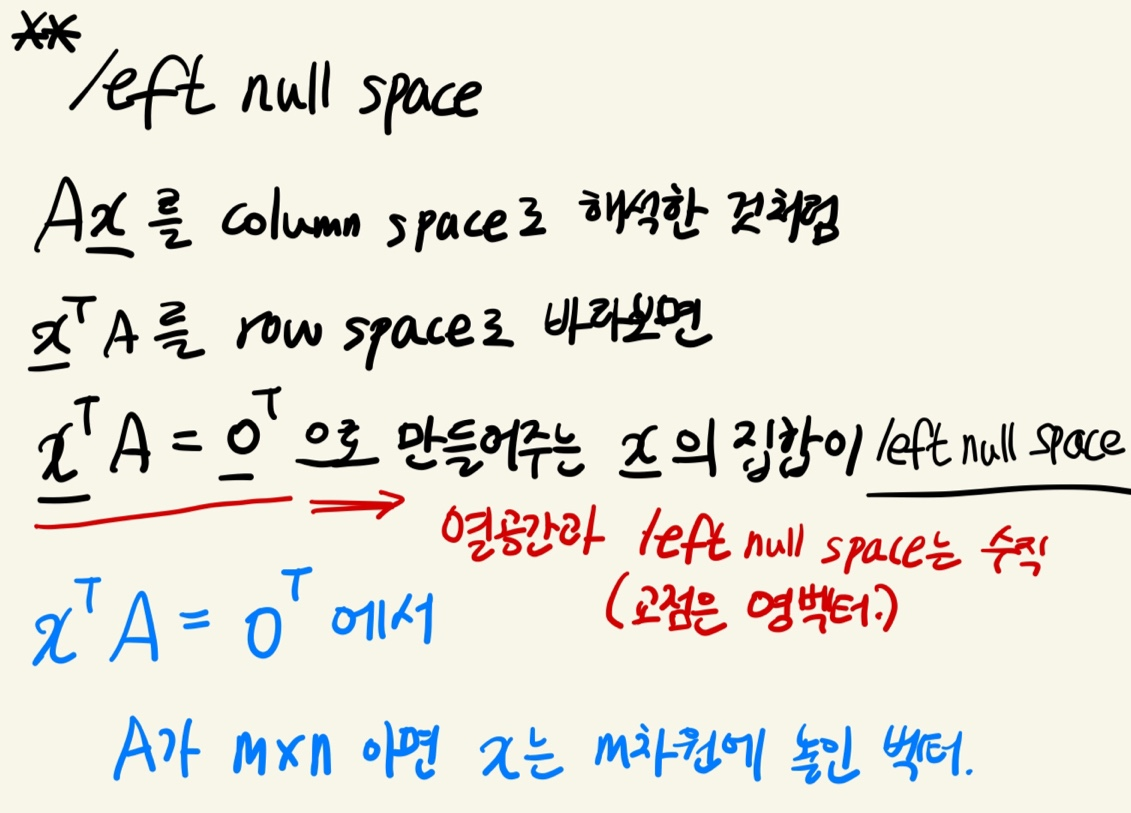 **
left null space
Ax를 column space로 해석한 것처럼
xᵀA를 row space로 바라보면
xᵀA = 0ᵀ으로 만들어주는 x의 집합이 left null space
⇒ 열공간과 left null space는 수직
(교점은 영벡터.)
xᵀA = 0ᵀ에서
A가 m×n 이면 x는 m차원에 놓인 벡터.